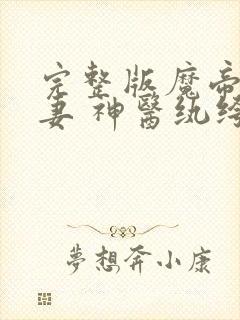 完整版魔帝
妻 神醫紈绔
夢想奔小康